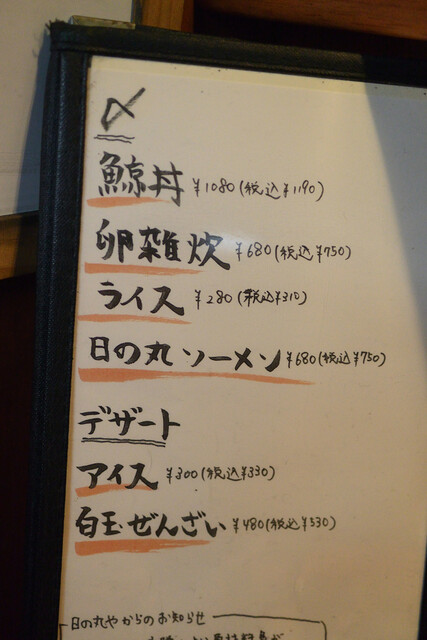 〆
鯨丼 ¥1080(税込¥1190)
卵雑炊 ¥680(税込¥750)
ライス ¥280(税込¥310)
日の丸ソーメン ¥680(税込¥750)
デザート
アイス ¥300(税込¥330)
白玉ぜんざい ¥480(税込¥530)
日の丸やからのお知らせ